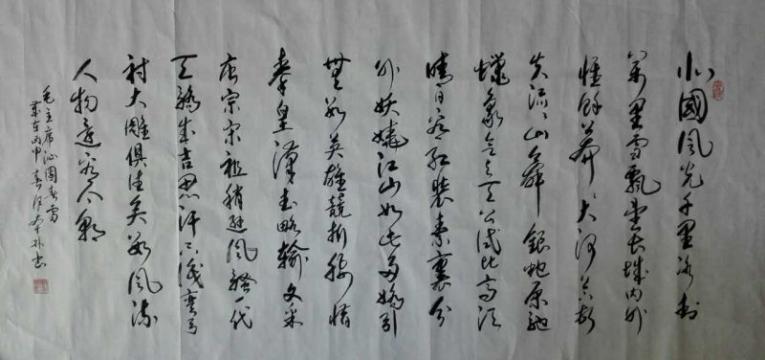 北國風光千里冰封
萬里雪飄望長城內外
惟餘莽莽大河上下頓
失滔滔山舞銀蛇原馳
蠟象欲與天公試比高須
晴日看紅裝素裹分
外妖嬈江山如此多嬌引
無數英雄競折腰惜
秦皇漢武略輸文采
唐宗宋祖稍遜風騷一代
天驕成吉思汗只識彎弓
射大雕俱往矣數風流
人物還看今朝
毛主席沁園春雪
歲在丙申春月書